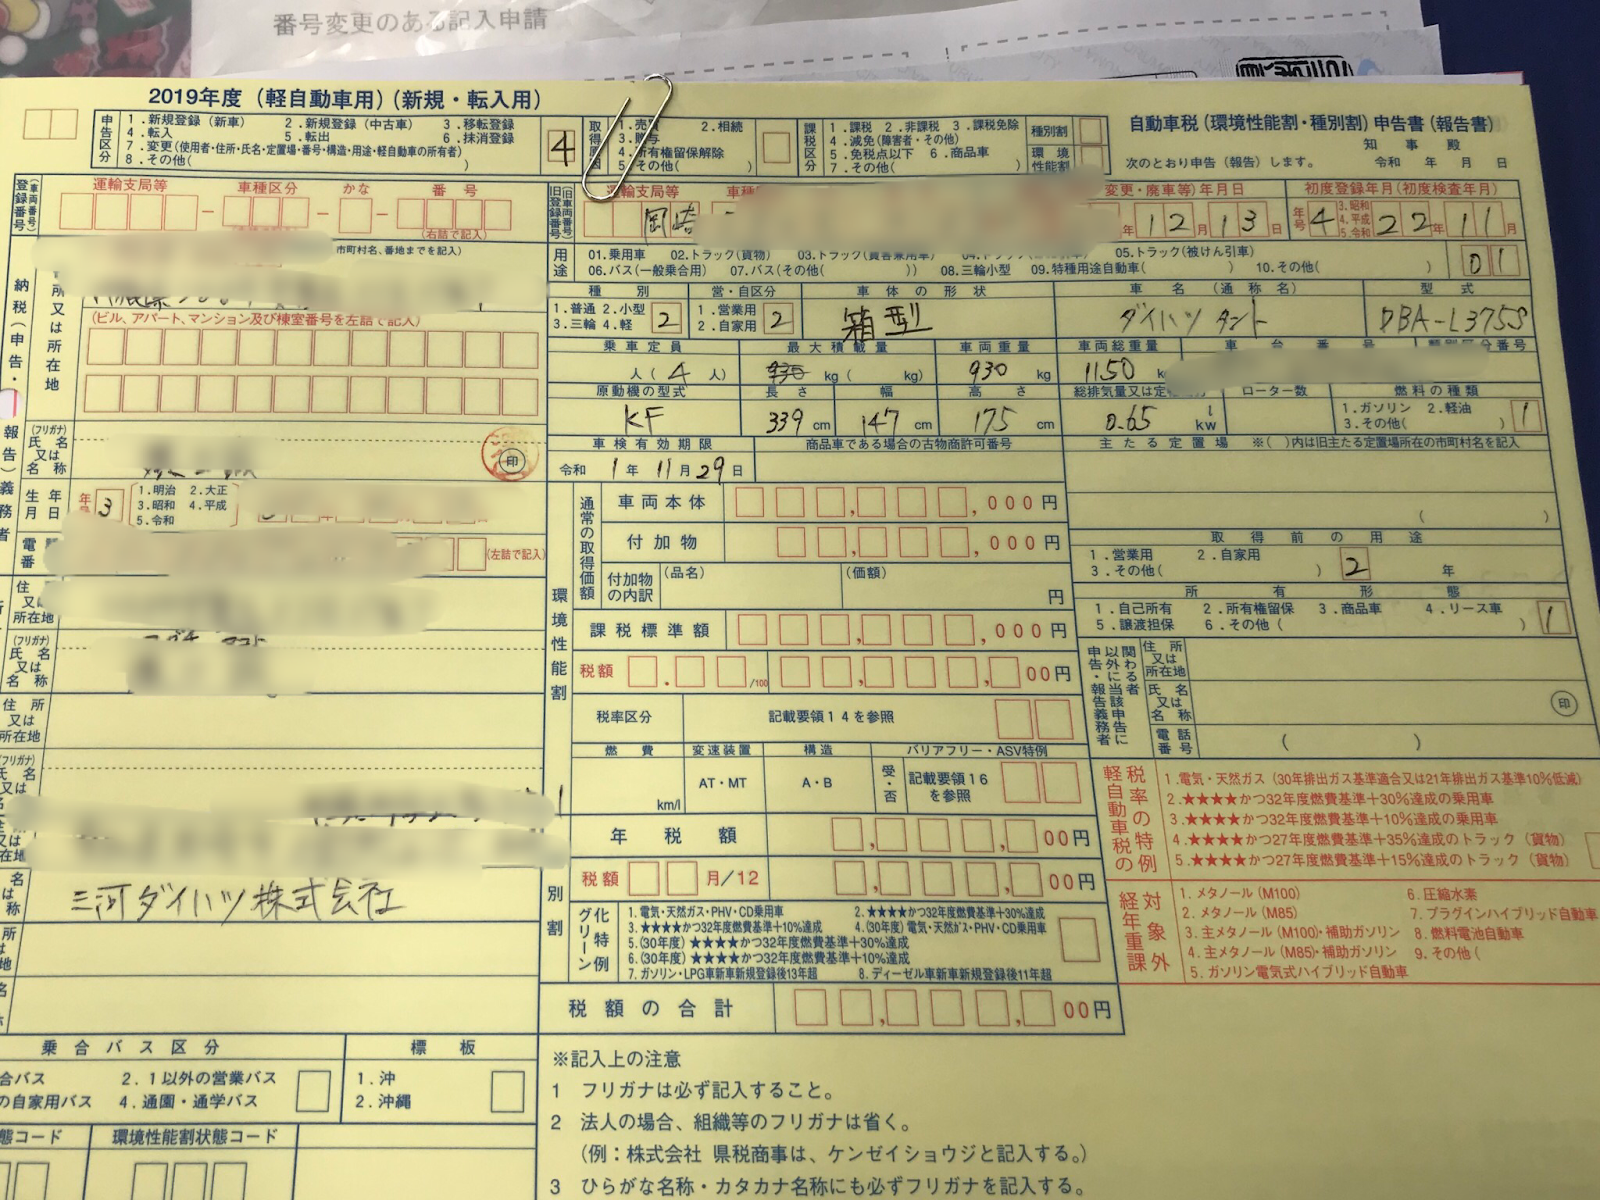 番号変更のある記入申請
2019年度（軽自動車用）（新規・転入用）
申告区分
1．新規登録（新車） 2．新規登録（中古車） 3．移転登録
4．転入 5．転出 6．抹消登録
7．変更（使用者・住所・氏名・定置場・番号・構造・用途・軽自動車の所有者）
8．その他(
4
1．売買 2．相続
所有権留保解除
その他(
課税区分
1．課税 2．非課税 3．課税免除
4．減免（障害者・その他）
5．免税点以下 6．商品車
7．その他(
種別割
環境性能割
自動車税（環境性能割・種別割）申告書（報告書）
知事殿
次のとおり申告（報告）します。 令和 年 月 日
登録番号（車両番号）
運輸支局等 車種区分 かな 番号
（右詰で記入）
旧登録番号（旧車両番号）
運輸支局等 車種
岡崎
変更・廃車等）年月日
年 12 月 13 日
初度登録年月（初度検査年月）
年号 4 3．昭和 4．平成 5．令和 22 年 11 月
市町村名、番地までを記入）
用途
01．乗用車 02．トラック（貨物） 03．トラック（貨客兼用車） 05．トラック（被けん引車）
06．バス（一般乗合用） 07．バス（その他( )） 08．三輪小型 09．特種用途自動車( ) 10．その他( )
01
納税（申告・報告）義務者
所又は所在地
（ビル、アパート、マンション及び棟室番号を左詰で記入）
種別
1．普通 2．小型
3．三輪 4．軽
2
営・自区分
1．営業用
2．自家用
2
車体の形状
箱型
車名（通称名）
ダイハツ タント
型式
DBA-L375S
乗車定員
人（4人）
最大積載量
kg（ kg）
車両重量
930 kg
車両総重量
1150 kg
車台番号
類別区分番号
原動機の型式
KF
長さ
339 cm
幅
147 cm
高さ
175 cm
総排気量又は定
0.65 l kw
ローター数
燃料の種類
1．ガソリン 2．軽油
3．その他( )
1
（フリガナ）
氏名又は名称
印
車検有効期限
令和 1年 11月 29日
商品車である場合の古物商許可番号
主たる定置場 ※( )内は旧主たる定置場所在の市町村名を記入
生年月日
年号 3
1．明治 2．大正
3．昭和 4．平成
5．令和
電話番
（左詰で記入）
環境性能割
通常の取得価額
車両本体 ，000円
付加物 ，000円
付加物の内訳 （品名） （価額） 円
課税標準額 ，000円
税額 ． /100 00円
税率区分 記載要領14を参照
燃費 変速装置 構造 バリアフリー・ASV特例
km/l AT・MT A・B 受・否 記載要領16を参照
取得前の用途
1．営業用 2．自家用
3．その他( )
2 年
所有形態
1．自己所有 2．所有権留保 3．商品車 4．リース車
5．譲渡担保 6．その他( )
1
住所又は所在地
（フリガナ）
氏名又は名称
住所又は所在地
（フリガナ）
氏名又は
三河ダイハツ株式会社
住所又は所在地
氏名又は名称
印
電話番号 ( )
別割
年税額 00円
税額 月/12 00円
グリーン化特例
1．電気・天然ガス・PHV・CD乗用車 2．★★★★かつ32年度燃費基準＋30％達成
3．★★★★かつ32年度燃費基準＋10％達成 4．（30年度）電気・天然ガス・PHV・CD乗用車
5．（30年度）★★★★かつ32年度燃費基準＋30％達成
6．（30年度）★★★★かつ32年度燃費基準＋10％達成
7．ガソリン・LPG車新車新規登録後13年超 8．ディーゼル車新車新規登録後11年超
税額の合計 00円
軽自動車税の税率の特例
1．電気・天然ガス（30年排出ガス基準適合又は21年排出ガス基準10％低減）
2．★★★★かつ32年度燃費基準＋30％達成の乗用車
3．★★★★かつ32年度燃費基準＋10％達成の乗用車
4．★★★★かつ27年度燃費基準＋35％達成のトラック（貨物）
5．★★★★かつ27年度燃費基準＋15％達成のトラック（貨物）
経年重課対象外
1．メタノール（M100） 6．圧縮水素
2．メタノール（M85） 7．プラグインハイブリッド自動車
3．主メタノール（M100）・補助ガソリン 8．燃料電池自動車
4．主メタノール（M85）・補助ガソリン 9．その他(
5．ガソリン電気式ハイブリッド自動車
乗合バス区分
合バス 2．1以外の営業バス
の自家用バス 4．通園・通学バス
標板
1．沖
2．沖縄
態コード 環境性能割状態コード
※記入上の注意
1 フリガナは必ず記入すること。
2 法人の場合、組織等のフリガナは省く。
（例：株式会社 県税商事は、ケンゼイショウジと記入する。）
3 ひらがな名称・カタカナ名称にも必ずフリガナを記入する。